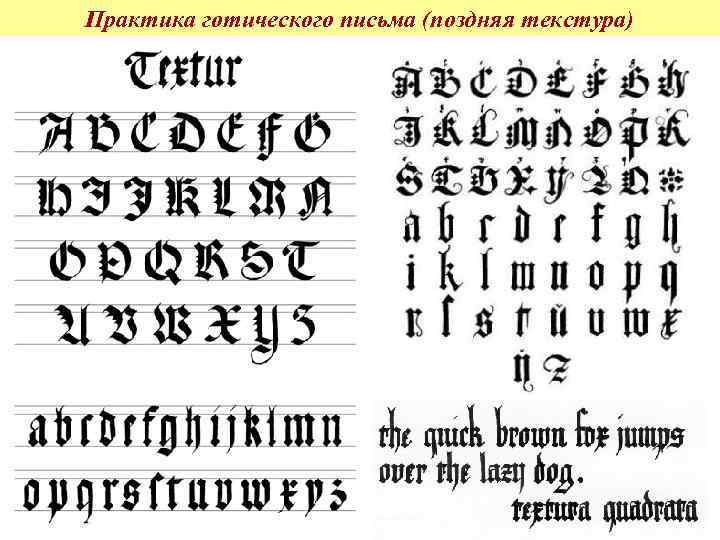 Практика готического письма (поздняя текстура)
Textur
A B C D E F G
H I J K L M N
O P Q R S T
U V W X Y Z
a b c d e f g h i j k l m n
o p q r s ſ t u v w x y z
A B C D E F G H
I K L M N O P R
S T X Y
a b c d e f g h
i k l m n o p q
r ſ s t ü v w x
ÿ z
the quick brown fox jumps
over the lazy dog.
textura quadrata